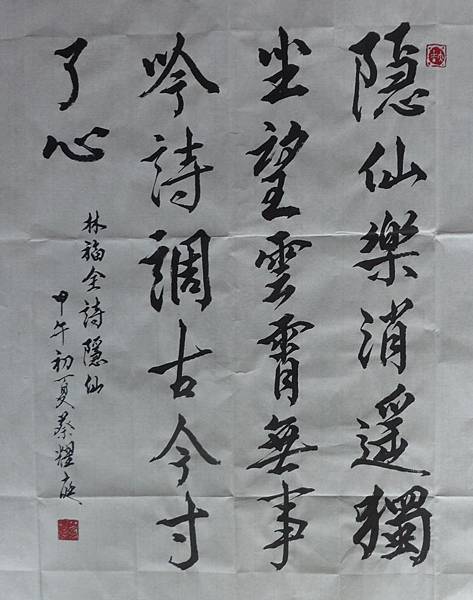 隱仙樂消遥獨
坐望雲霄無事
吟詩調古今寸
了心
林福全詩隱仙
甲午初夏蔡耀庭